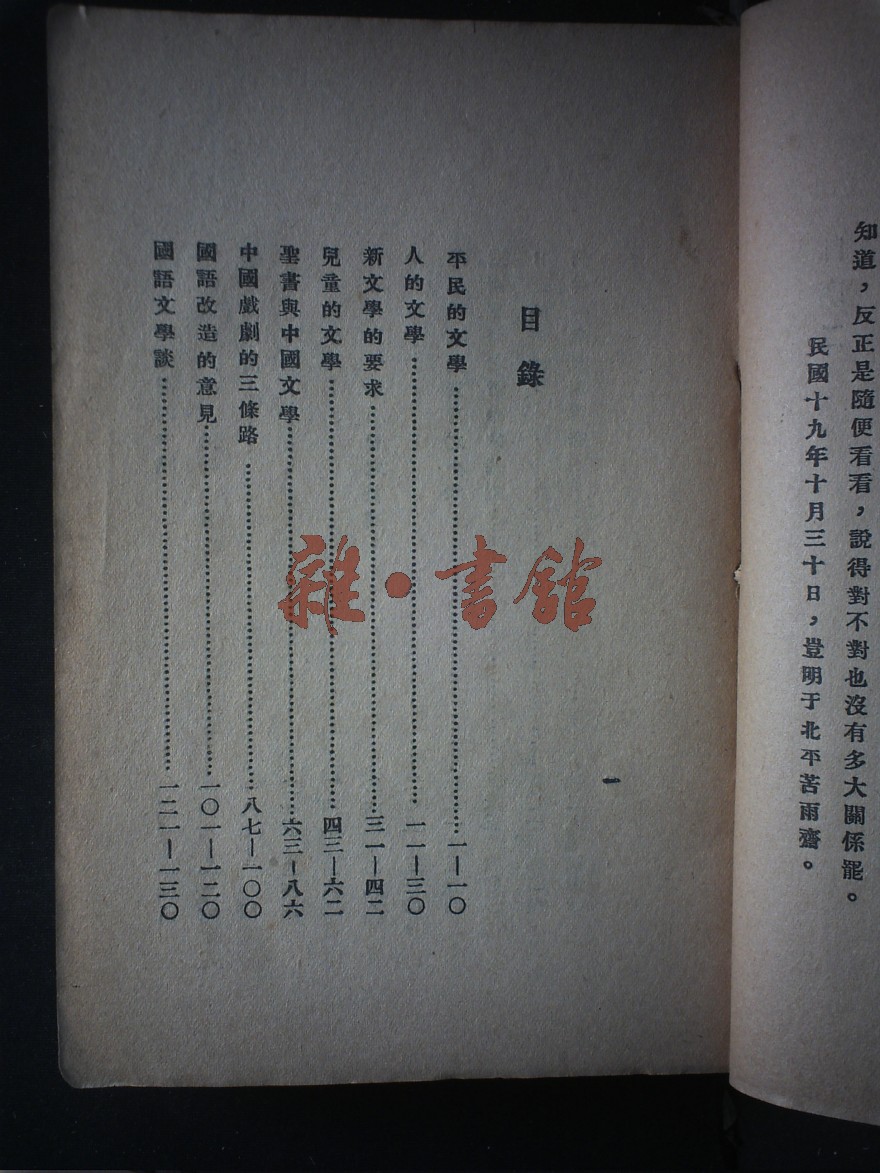 知道，反正是隨便看看，說得對不對也沒有多大關係罷。
民國十九年十月三十日，豈明于北平苦雨齋。
一
目錄
平民的文學……………………一—一〇
人的文學……………………一一—三〇
新文學的要求……………………三一—四二
兒童的文學……………………四三—六二
聖書與中國文學……………………六三—八六
中國戲劇的三條路……………………八七—一〇〇
國語改造的意見……………………一〇一—一二〇
國語文學談……………………一二一—一三〇
雜·書館